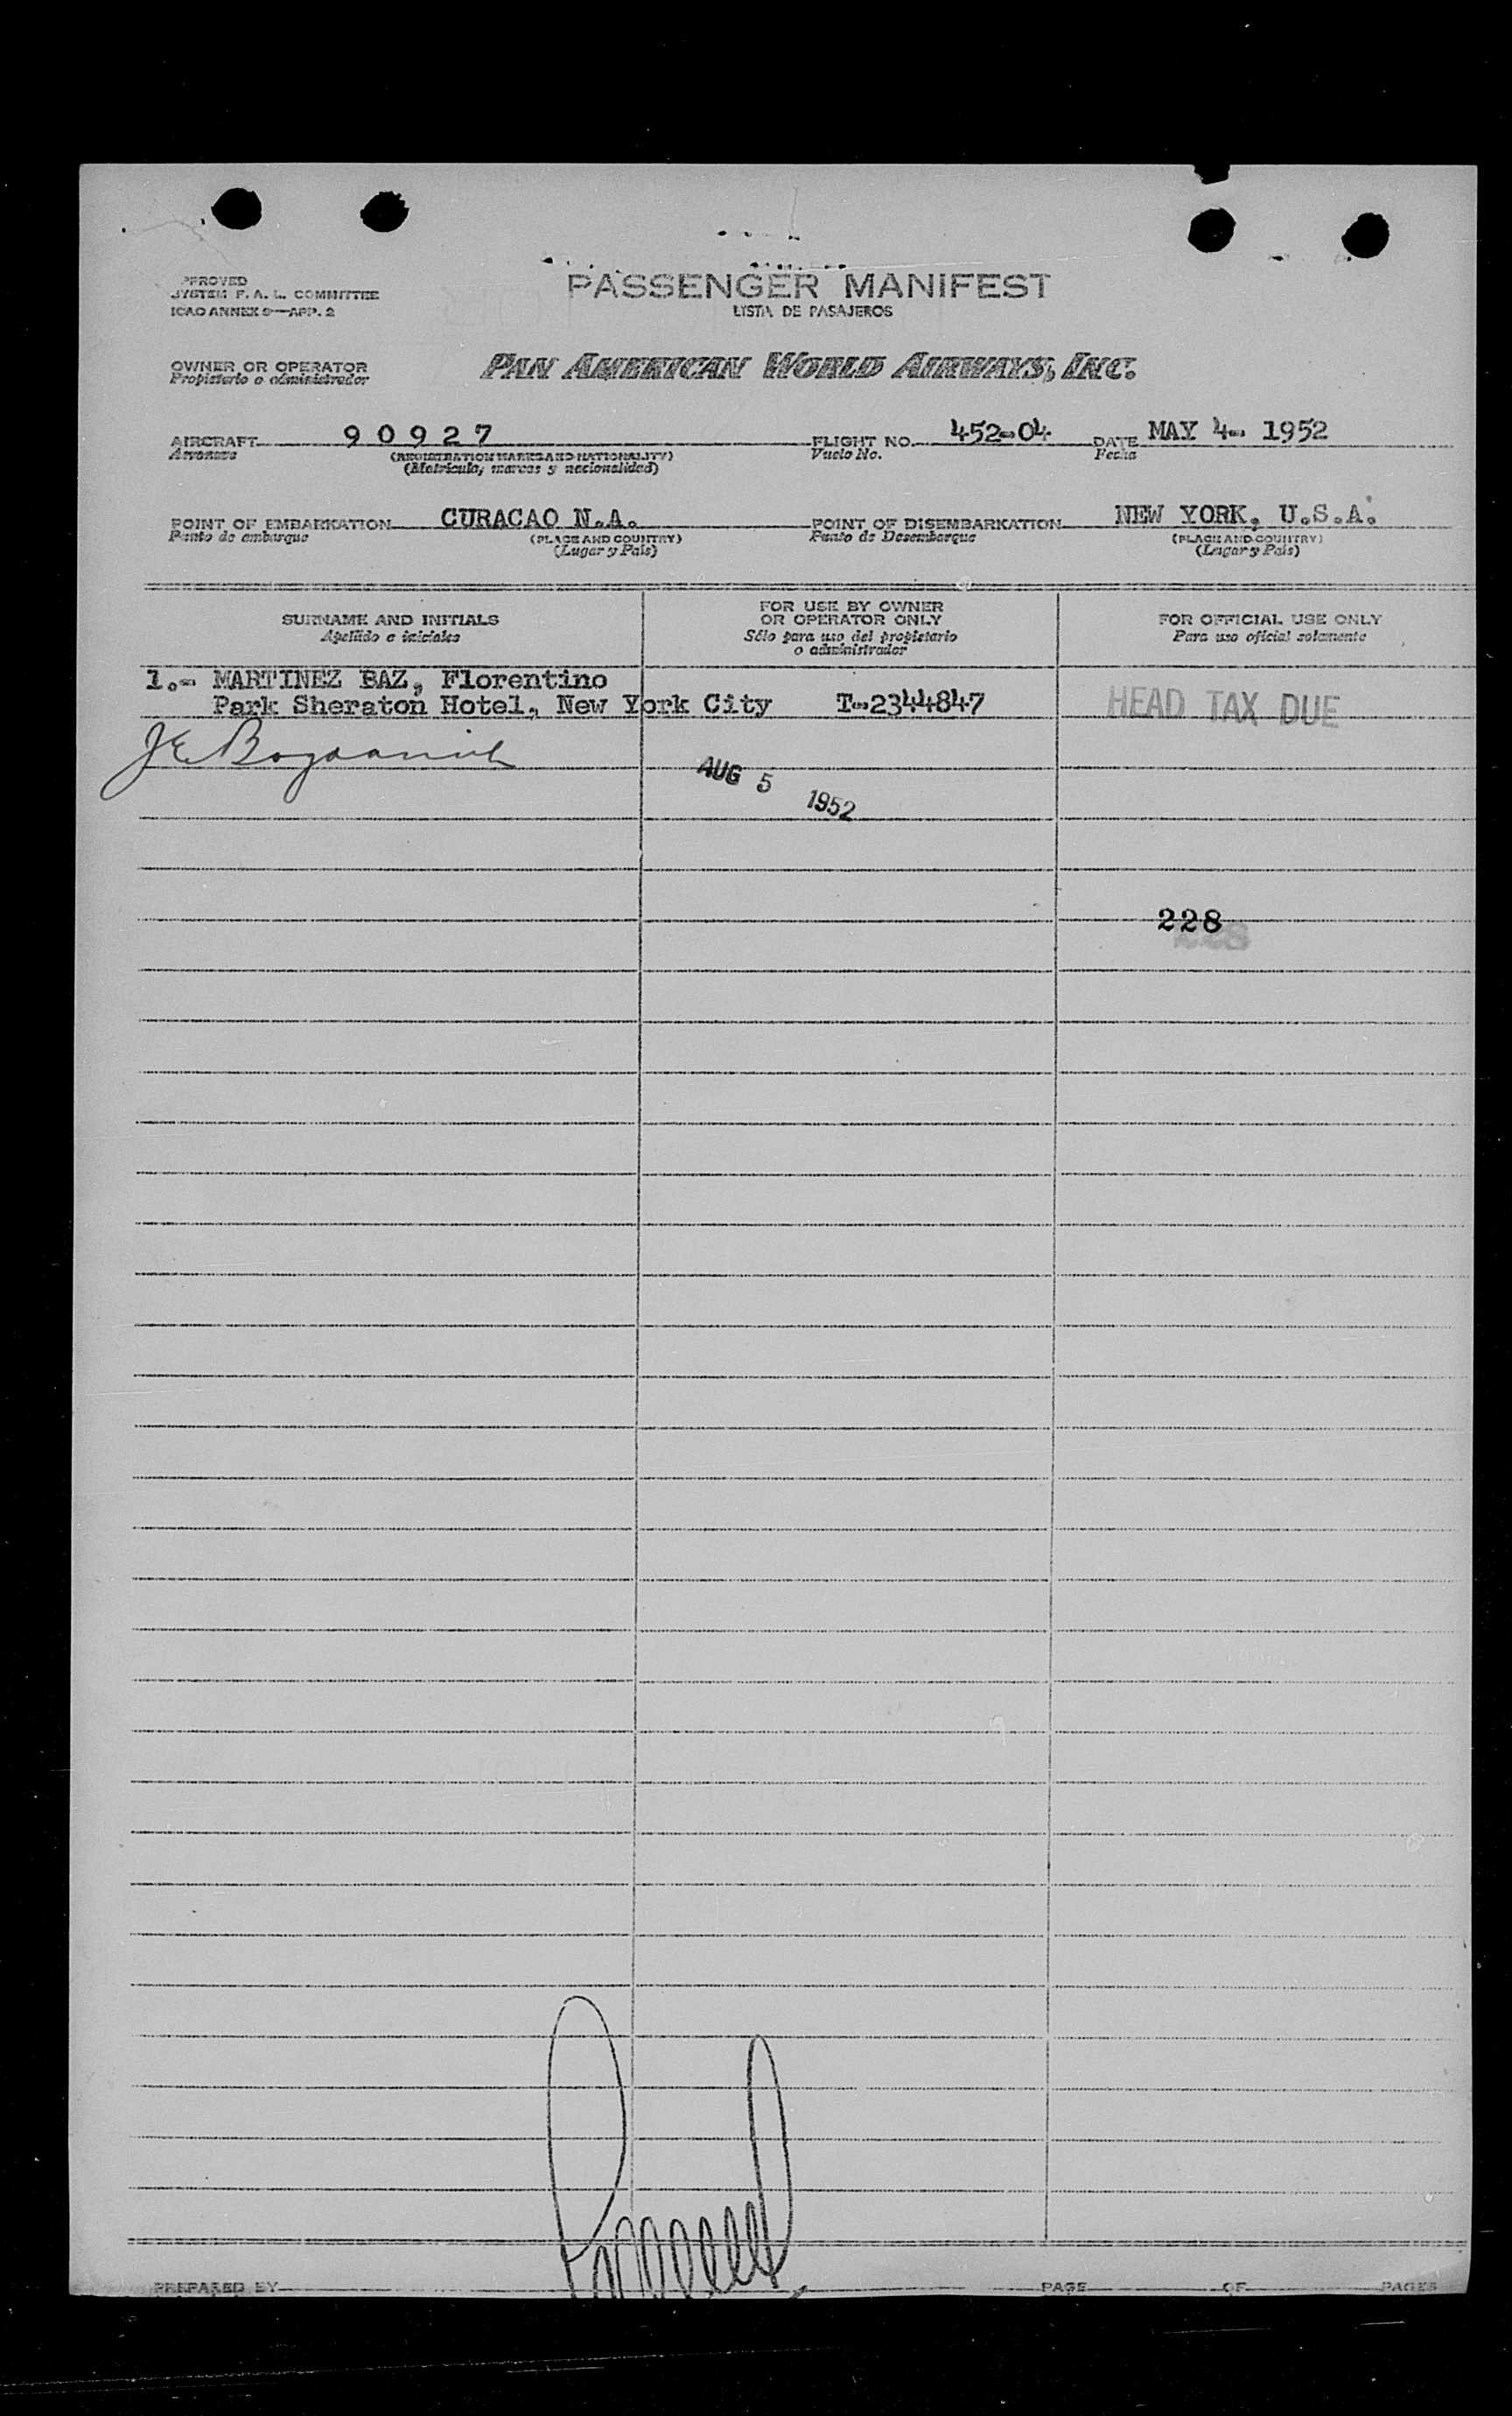 PPROVED
SYSTEM F. A. L. COMMITTEE
ICAO ANNEX 9—APP. 2
PASSENGER MANIFEST
LISTA DE PASAJEROS
OWNER OR OPERATOR
Propietario o administrador
PAN AMERICAN WORLD AIRWAYS, INC.
AIRCRAFT 90927 FLIGHT NO. 452-04 DATE MAY 4- 1952
Aeronave (REGISTRATION MARKS AND NATIONALITY) Vuelo No. Fecha
(Matrícula, marcas y nacionalidad)
POINT OF EMBARKATION CURACAO N.A. POINT OF DISEMBARKATION NEW YORK, U.S.A.
Punto de embarque (PLACE AND COUNTRY) Punto de Desembarque (PLACE AND COUNTRY)
(Lugar y País) (Lugar y País)
SURNAME AND INITIALS
Apellido e iniciales
FOR USE BY OWNER
OR OPERATOR ONLY
Sólo para uso del propietario
o administrador
FOR OFFICIAL USE ONLY
Para uso oficial solamente
1.- MARTINEZ BAZ, Florentino
Park Sheraton Hotel, New York City T-2344847 HEAD TAX DUE
AUG 5 1952
228
PREPARED BY PAGE OF PAGES